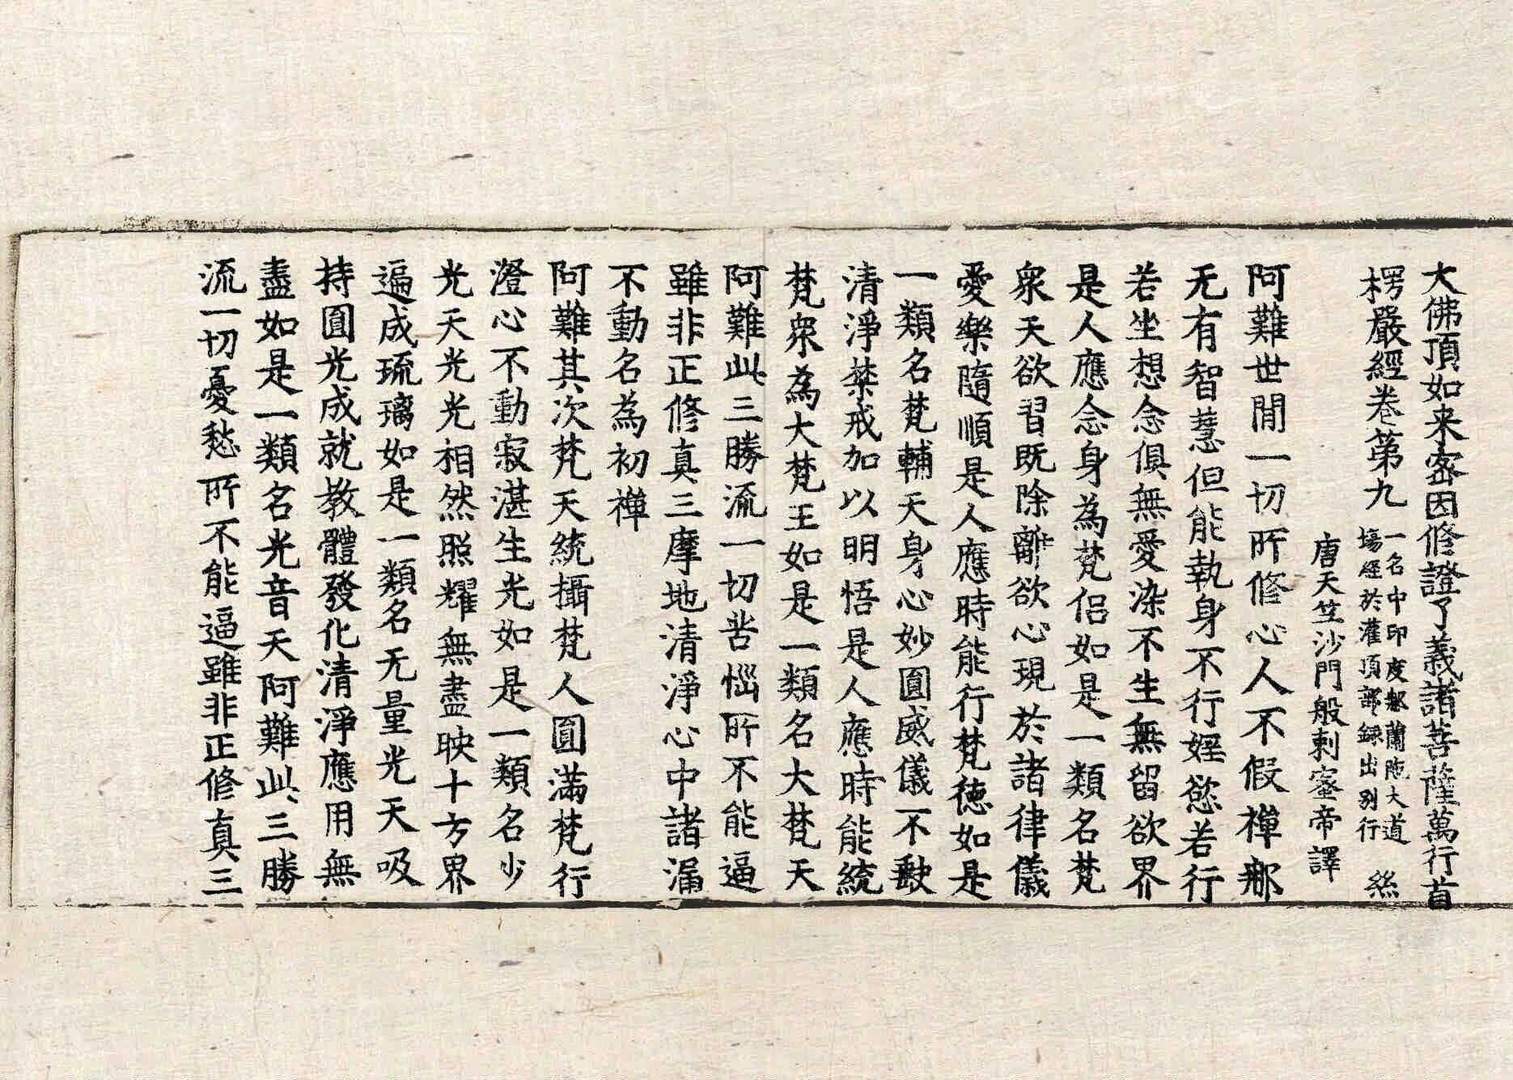 大佛頂如来密因修證了義諸菩薩萬行首
楞嚴經卷第九
一名中印度那蘭陁大道
場經於灌頂部録出別行
絲
唐天竺沙門般剌蜜帝譯
阿難世間一切所修心人不假禪那
无有智慧但能執身不行婬慾若行
若坐想念俱無愛染不生無留欲界
是人應念身為梵侣如是一類名梵
衆天欲習既除離欲心現於諸律儀
愛樂隨順是人應時能行梵德如是
一類名梵輔天身心妙圓威儀不缺
清淨禁戒加以明悟是人應時能統
梵衆為大梵王如是一類名大梵天
阿難此三勝流一切苦惱所不能逼
雖非正修真三摩地清淨心中諸漏
不動名為初禪
阿難其次梵天統攝梵人圓滿梵行
澄心不動寂湛生光如是一類名少
光天光光相然照耀無盡映十方界
遍成琉璃如是一類名无量光天吸
持圓光成就教體發化清淨應用無
盡如是一類名光音天阿難此三勝
流一切憂愁所不能逼雖非正修真三